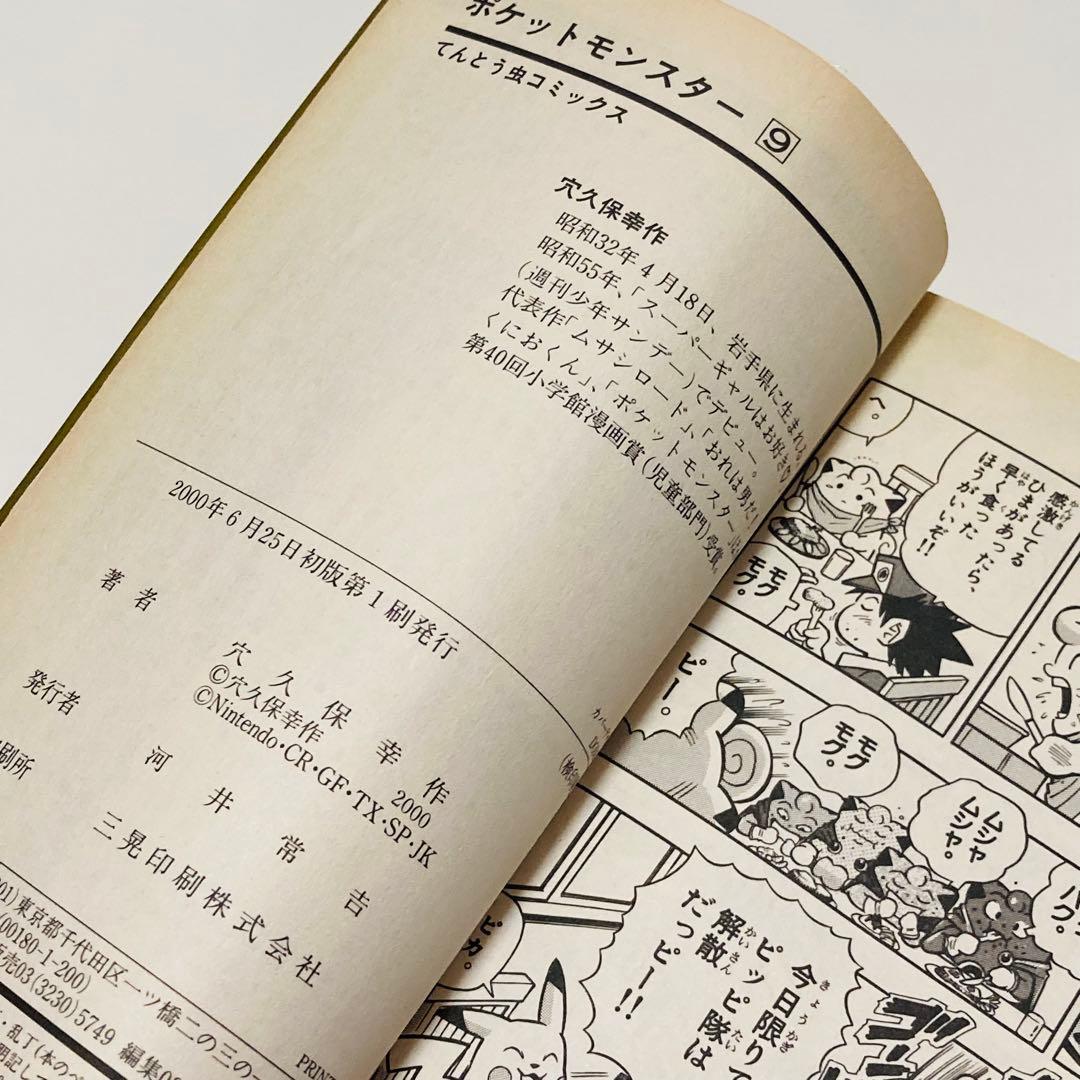 ポケットモンスター 9
てんとう虫コミックス
穴久保幸作
昭和32年4月18日、岩手県に生まれる
昭和55年、「スーパーギャルはお好き
(週刊少年サンデー)でデビュー。
代表作「ムサシロード」、「おれは男だ!
くにおくん」、「ポケットモンスター」
第40回小学館漫画賞(児童部門)受賞。
2000年6月25日初版第1刷発行
著者 穴久保幸作
©穴久保幸作 2000
©Nintendo・CR・GF・TX・SP・JK
発行者 河井常吉
刷所 三晃印刷株式会社
01)東京都千代田区一ツ橋二の三の一
(00180-1-200)
売03(3230)5749 編集
PRINT
・乱丁(本のペ
明記して
へ。
感激してる
ひまがあったら、
早く食った
ほうがいいぞ!!
モグモグ。
ピー。
モグモグ。
ムシャムシャ。
ピカ。
今日限り
ピッピ隊は
解散
だっピー!!